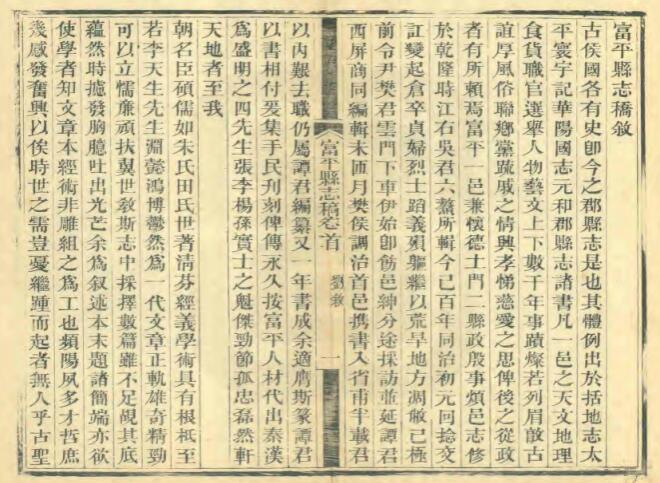 富平縣志稿敘
古侯國各有史卽今之郡縣志是也其體例出於括地志太
平寰宇記華陽國志元和郡縣志諸書凡一邑之天文地理
食貨職官選舉人物藝文上下數千年事蹟燦若列眉敵古
誼厚風俗聯鄉黨疏戚之情興孝悌慈愛之思俾後之從政
者有所賴焉富平一邑兼懷德土門二縣政殷事煩邑志修
於乾隆時江右吳君六鰲所輯今已百年同治初元回捻交
訌變起倉卒貞婦烈士蹈義殞軀繼以荒旱地方凋敝已極
前令尹樊君雲門下車伊始卽飭邑紳分途採訪並延譚君
西屏商同編輯未匝月樊侯調治首邑携書入省甫半載君
富平縣志稿卷首
劉敘
一
以內艱去職仍屬譚君編纂又一年書成余適膺斯篆譚君
以書相付爰集手民刋刻俾傳永久按富平人材代出秦漢
爲盛明之四先生張李楊孫實士之魁傑勁節孤忠磊然軒
天地者至我
朝名臣碩儒如朱氏田氏世著淸芬經義學術具有根柢至
若李天生先生淵懿鴻博鬱然爲一代文章正軌雄奇精勁
可以立懦廉頑扶翼世敎斯志中採擇數篇雖不足覘其底
蘊然時攄發胸臆吐出光芒余爲叙述本末題諸簡端亦欲
使學者知文章本經術非雕組之爲工也頻陽夙多才哲庶
幾感發奮興以俟時世之需豈憂繼踵而起者無人乎古聖